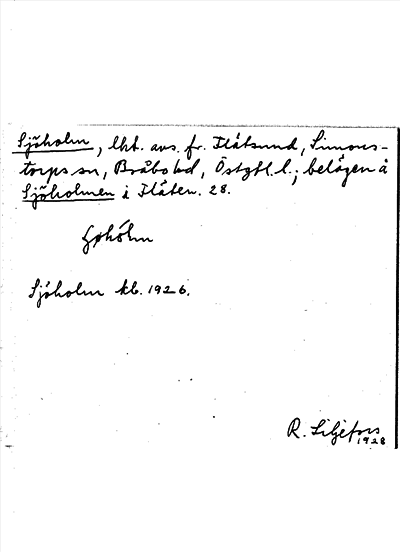 Sjöholm, lht. avs. fr. Flåtsund, Simons-
torps sn, Bråbo hd, Östgtl. l.; belägen å
Sjöholmen i Flåten. 28.
Sjöholm kb. 1926.
R. Liljefors
1928